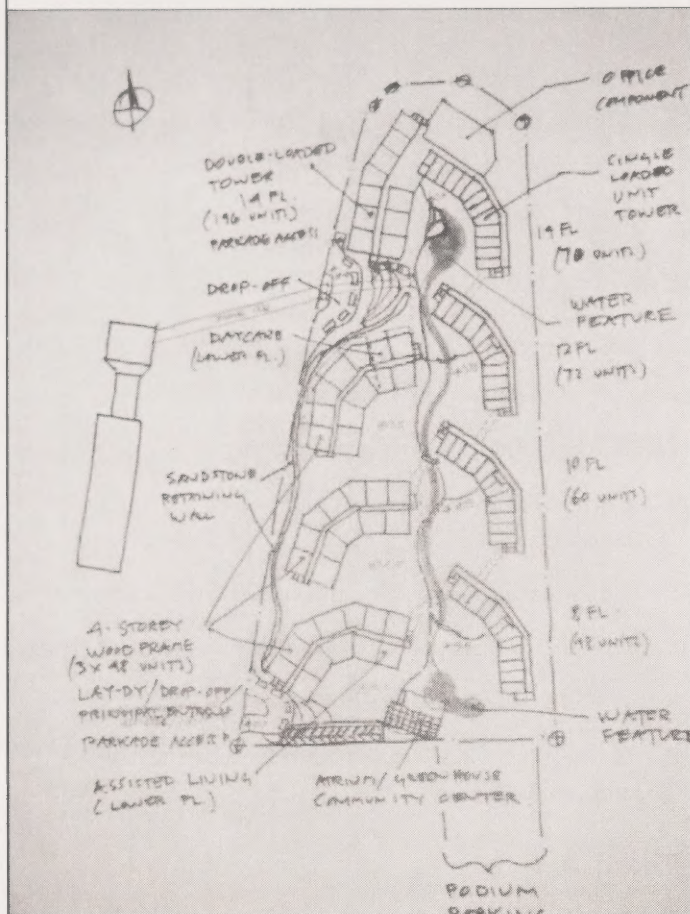 OFFICE
COMPONENT
DOUBLE-LOADED
TOWER
14 FL.
(196 UNITS)
PARKADE ACCESS
SINGLE
LOADED
UNIT
TOWER
14 FL
(70 UNITS)
DROP-OFF
WATER
FEATURE
DAYCARE
(LOWER FL.)
12 FL
(72 UNITS)
SANDSTONE
RETAINING
WALL
10 FL
(60 UNITS)
4-STOREY
WOOD FRAME
(3 X 48 UNITS)
8 FL
(48 UNITS)
LAY-BY/DROP-OFF/
PRINCIPAL ENTRANCE
PARKADE ACCESS
WATER
FEATURE
ASSISTED LIVING
(LOWER FL.)
ATRIUM/GREENHOUSE
COMMUNITY CENTER
PODIUM
PARKING